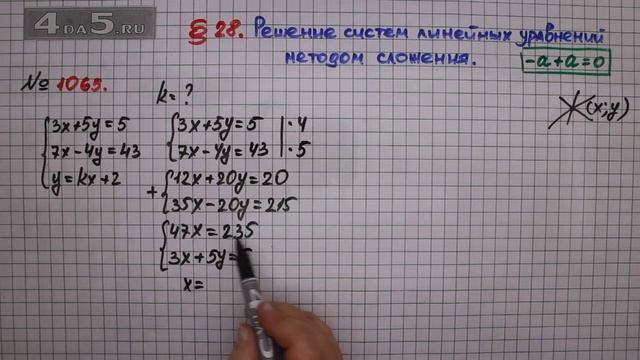 4DA5.RU
§ 28. Решение систем линейных уравнений
методом сложения. -a+a=0
№ 1065. k=?
(x;y)
3x+5y=5
7x-4y=43
y=kx+2
3x+5y=5 | ·4
7x-4y=43 | ·5
+ 12x+20y=20
35x-20y=215
47x=235
3x+5y=
x=